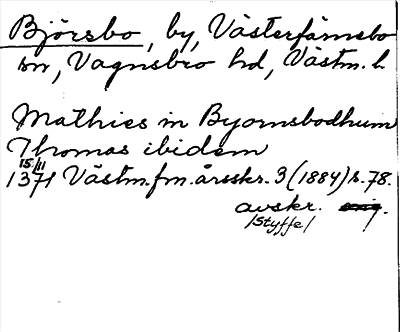 Björsbo, by, Västerfärnebo
sn, Vagnsbro hd, Västm. l.
Mathies in Byornsbodhum
Thomas ibidem
15/11
1371 Västm.fm.årsskr. 3 (1884) s. 78.
avskr. orig.
/Styffe/